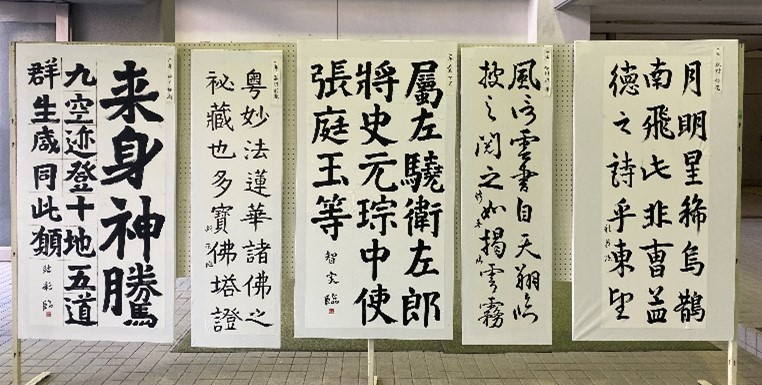 月明星稀烏鵲
南飛此非曹孟
德之詩乎東望
風信雲書自天翔臨
披之閲之如揭雲霧
屬左驍衛左郎
將史元琮中使
張庭玉等
粵妙法蓮華諸佛之
祕藏也多寶佛塔證
来身神騰
九空迹登十地五道
群生咸同此願